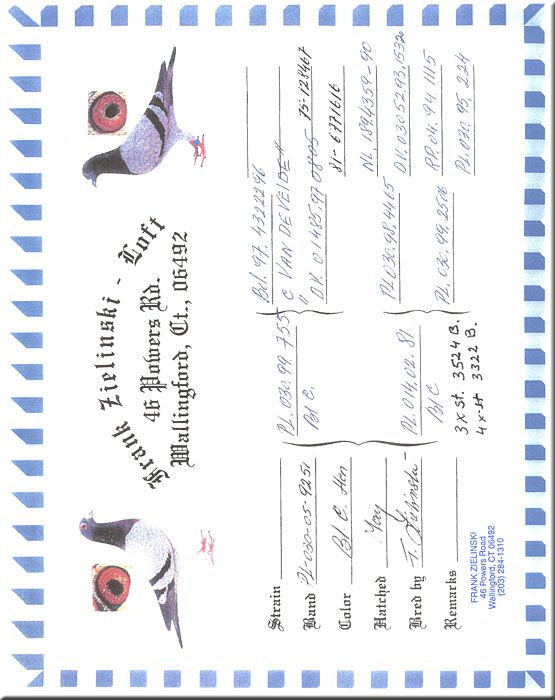 Frank Zielinski - Loft
46 Powers Rd.
Wallingford, Ct., 06492
Strain
Band PL-030-05-9251
Color Bl C. Hen
Hatched May
Bred by F. Zielinski
Remarks
FRANK ZIELINSKI
46 Powers Road
Wallingford, CT 06492
(203) 284-1310
PL. 030. 99. 755
Bl C.
PL. 014. 02. 81
Bl C
3 x st. 3524 B.
4 x st 3322 B.
Bel. 97. 4322296
C VAN DE VEIDEN
" DV. 01485.97 0805
PL 030. 98. 4415
PL. 030. 99. 2506
75-128467
81-6771616
NL. 1894359-90
DV. 03052.93.1532
RP. 04. 94. 1115
PL. 030. 95. 224